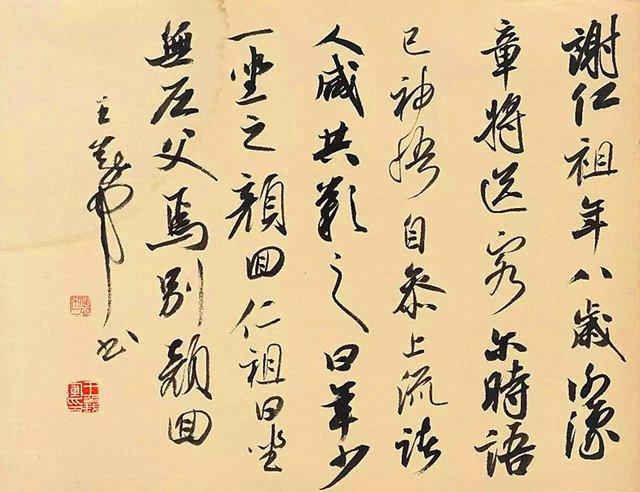 謝仁祖年八歲謝豫
章將送客尔時語
已神悟自参上流諸
人咸共歎之曰年少
一坐之顏回仁祖曰坐
無尼父焉別顏回
王義軍书